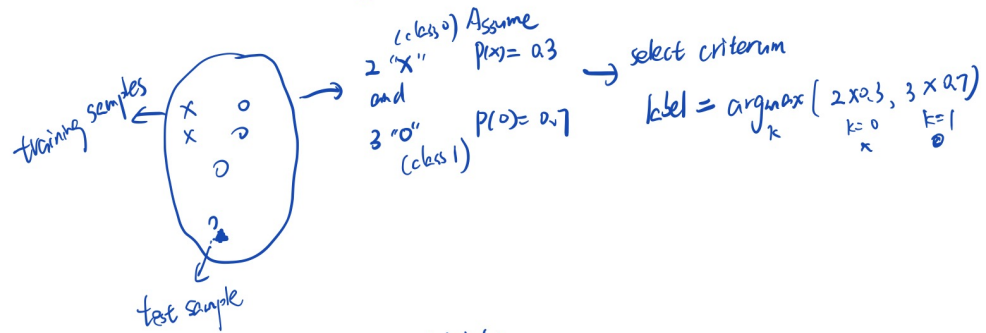 training samples
x o
x o
o
?
test sample
(class 0) Assume
2 "x" P(x) = 0.3
and
3 "o" P(o) = 0.7
(class 1)
select criterum
label = argmax ( 2 x 0.3, 3 x 0.7)
k k=0 k=1
x o